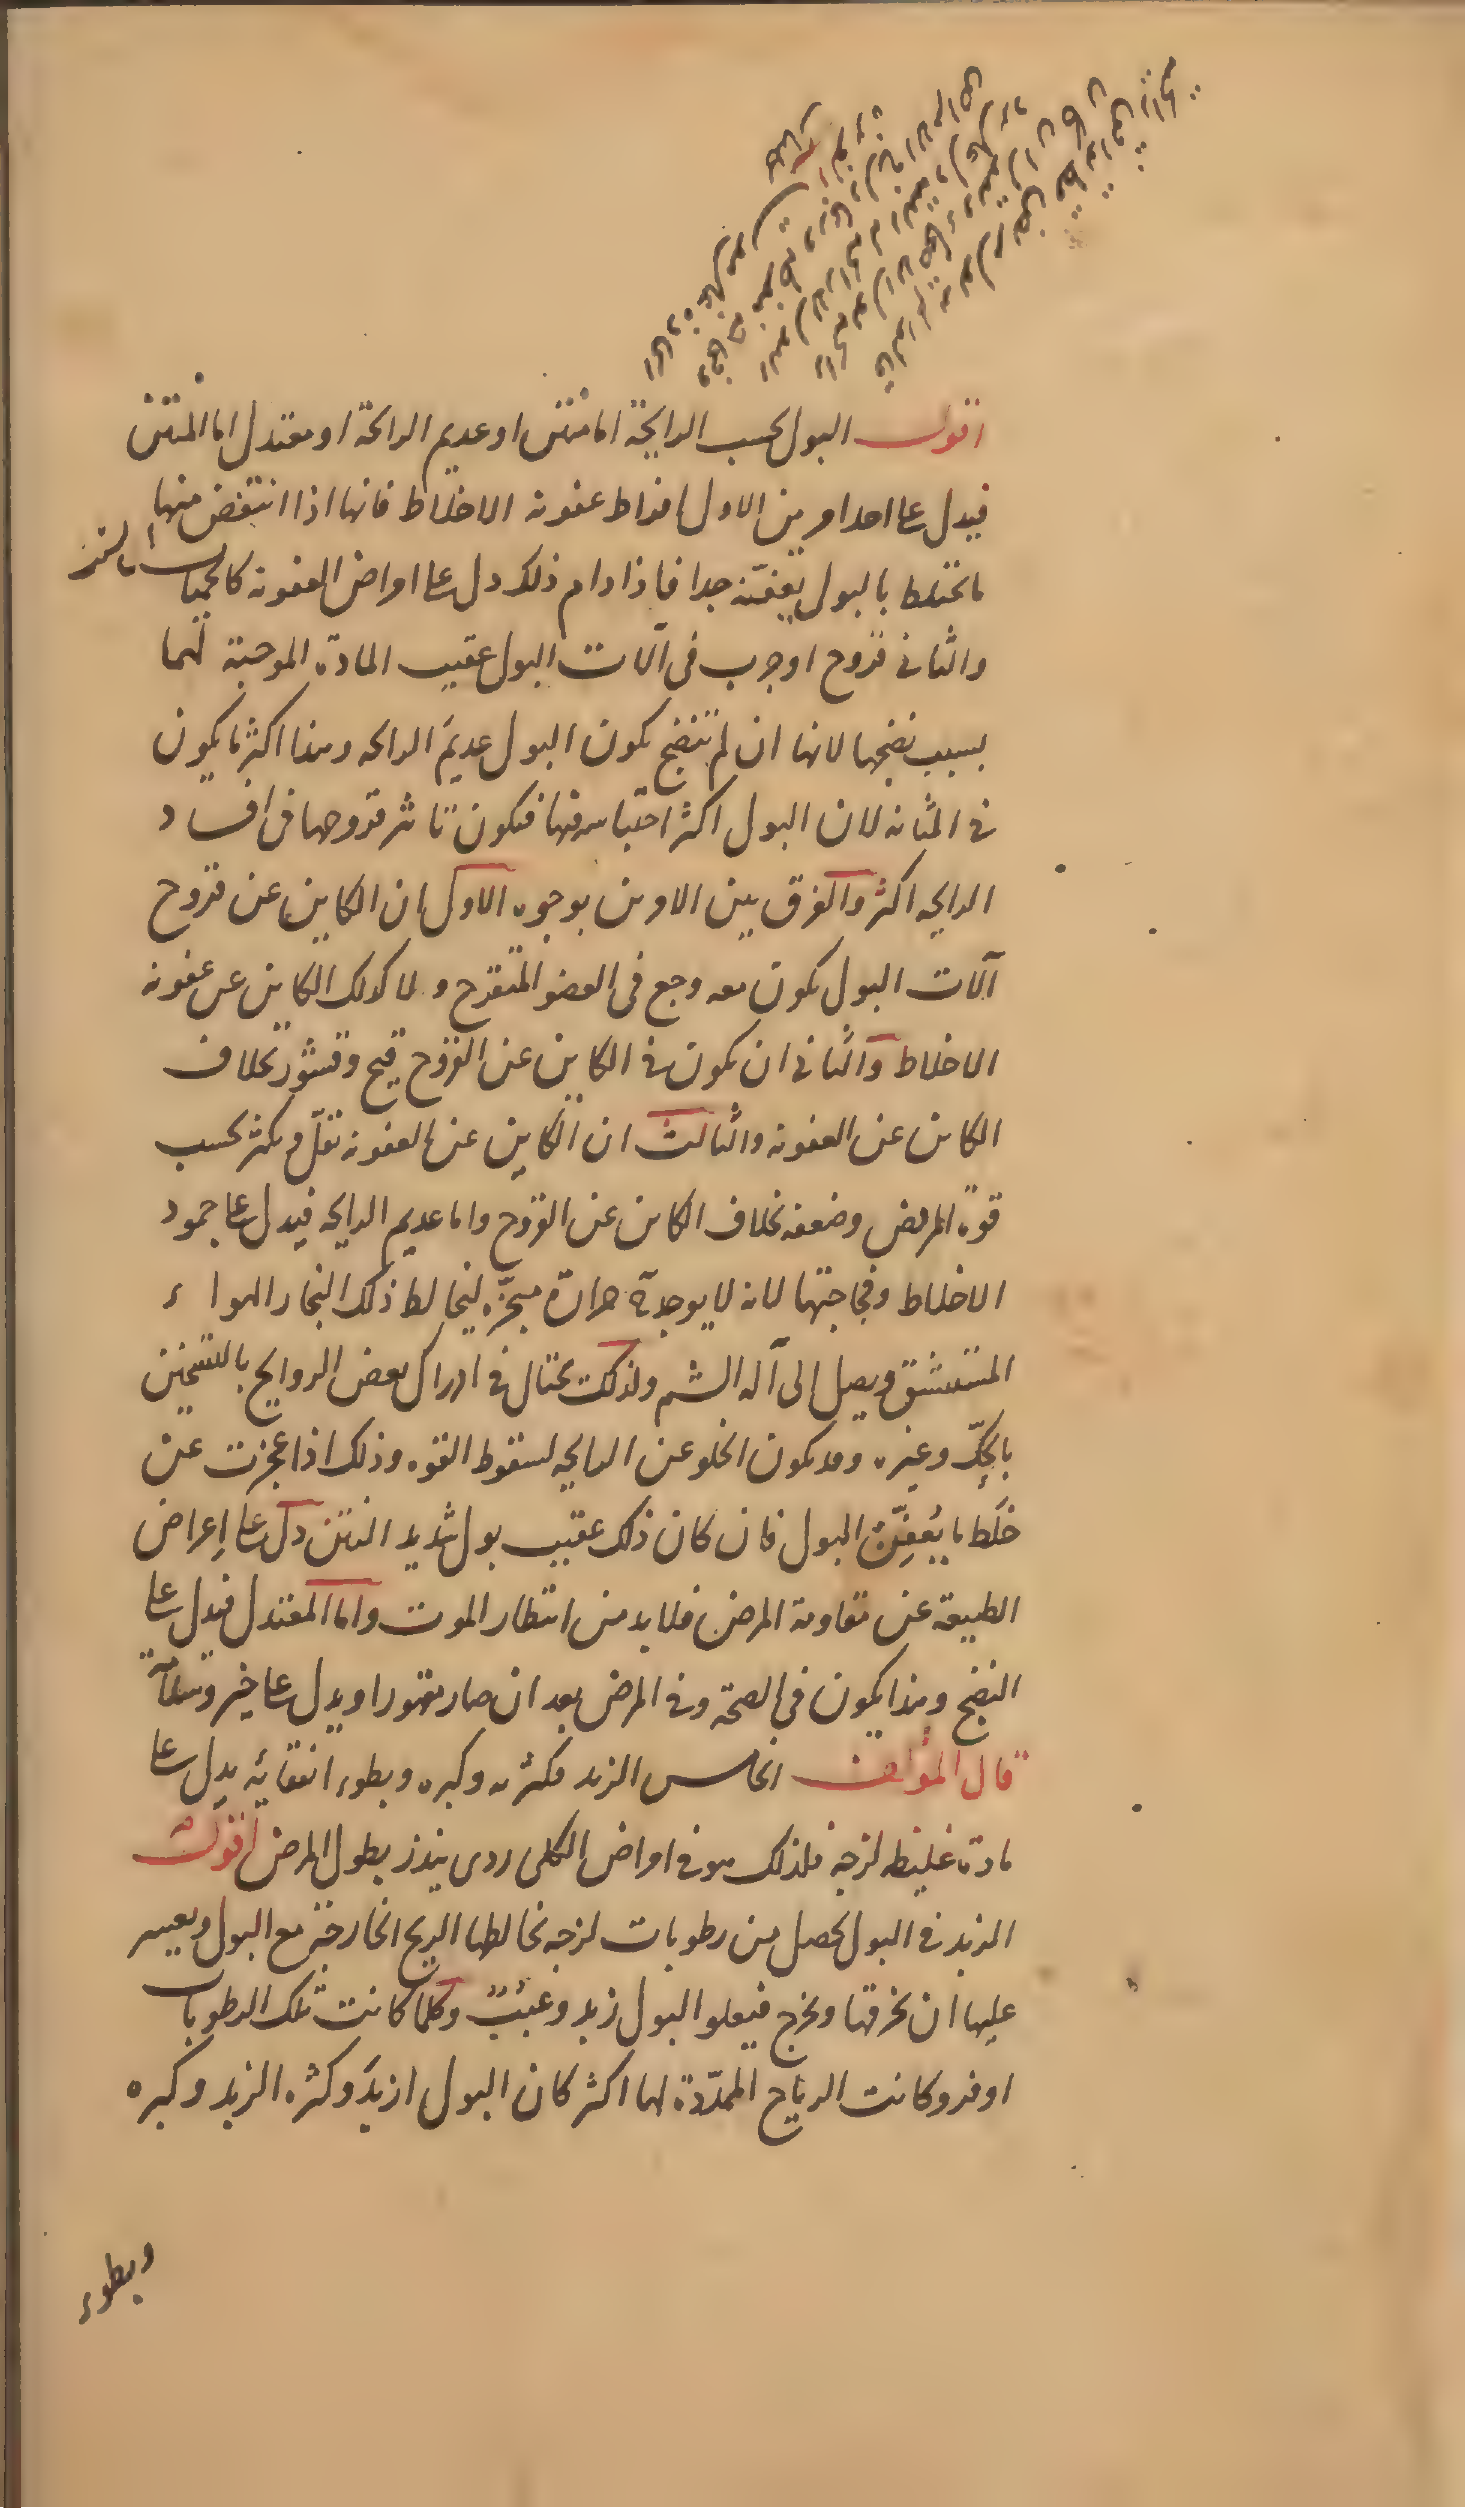 اقول البول بحسب الرايحة اما منتن او عديم الرائحة او معتدل اما المنتن
فيدل على احد امرين الاول افراط عفونة الاخلاط فانها اذا انتفض منها
ما يختلط بالبول يعفنه جدا فاذا دام ذلك دل على امراض العفونة كالحميات
والثاني قروح او جرب في آلات البول عقيب المادة الموجبة لهما
بسبب نضجها لانها ان لم تنضج يكون البول عديمَ الرائحه وهذا اكثر ما يكون
في المثانه لان البول اكثر احتباسه فيها فيكون تاثير قروحها في افساد
الرايحه اكثر والفرق بين الامرين بوجوه الاول ان الكاين عن قروح
آلات البول يكون معه وجع في العضو المتقرح و لا كذلك الكاين عن عفونة
الاخلاط والثاني ان يكون في الكاين عن القروح قيح وقشور بخلاف
الكاين عن العفونه والثالث ان الكاين عن العفونة تقلّ و تكثر بحسب
قوة المريض وضعفه بخلاف الكاين عن القروح واما عديم الرايحه فيدل على جمود
الاخلاط وفجاجتها لانه لا يوجد حرارة مبخّره ليخالط ذلك البخار الهواء
المستنشق ويصل الى آلة الشم ولذلك يحتال في ادراك بعض الروايح بالتسخين
بالحكّ وغيره وقد يكون الخلو عن الرايحه لسقوط القوه وذلك اذا عجزت عن
خلط ما يُعفِّن البول فان كان ذلك عقيب بول شديد النتن دل على اعراض
الطبيعة عن مقاومة المرض فلا بد من انتظار الموت واما المعتدل فيدل على
النضج وهذا يكون في الصحة وفي المرض بعد ان صار مقهورا ويدل على خير وسلامة
قال المؤلف الخامس الزبد فكثرته وكبره وبطوء انفقائه يدل على
مادة غليظه لزجه فلذلك هو في امراض الكلى ردى ينذر بطول المرض اقول
الزبد في البول يحصل من رطوبات لزجه تخالطها الريح الخارجة مع البول ويعسر
عليها ان تخرقها وتخرج فيعلو البول زبد وعبب وكلما كانت تلك الرطوبات
اوفر وكانت الرياح الممدّدة لها اكثر كان البول ازبدَ وكثرة الزبد وكبره
وبطوء